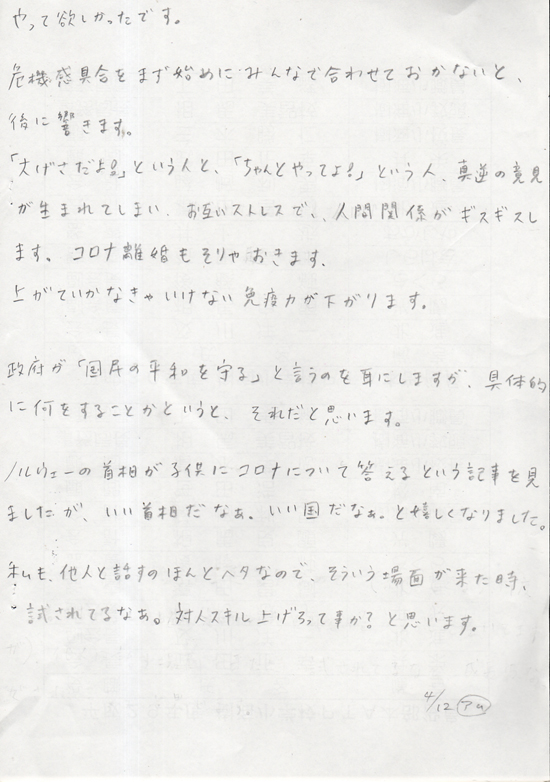 やって欲しかったです。
危機感具合をまず始めにみんなで合わせておかないと、
後に響きます。
「大げさだよ!」という人と、「ちゃんとやってよ!」という人、真逆の意見
が生まれてしまい、お互いストレスで、人間関係がギスギスし
ます。コロナ離婚もそりゃおきます、
上がていかなきゃいけない免疫力が下がります。
政府が「国民の平和を守る」と言うのを耳にしますが、具体的
に何をすることかというと、それだと思います。
ノルウェーの首相が子供にコロナについて答えるという記事を見
ましたが、いい首相だなぁ。いい国だなぁ。と嬉しくなりました。
私も、他人と話すのほんとヘタなので、そういう場面が来た時、
試されてるなぁ。対人スキル上げろって事か?と思います。
4/12 アム